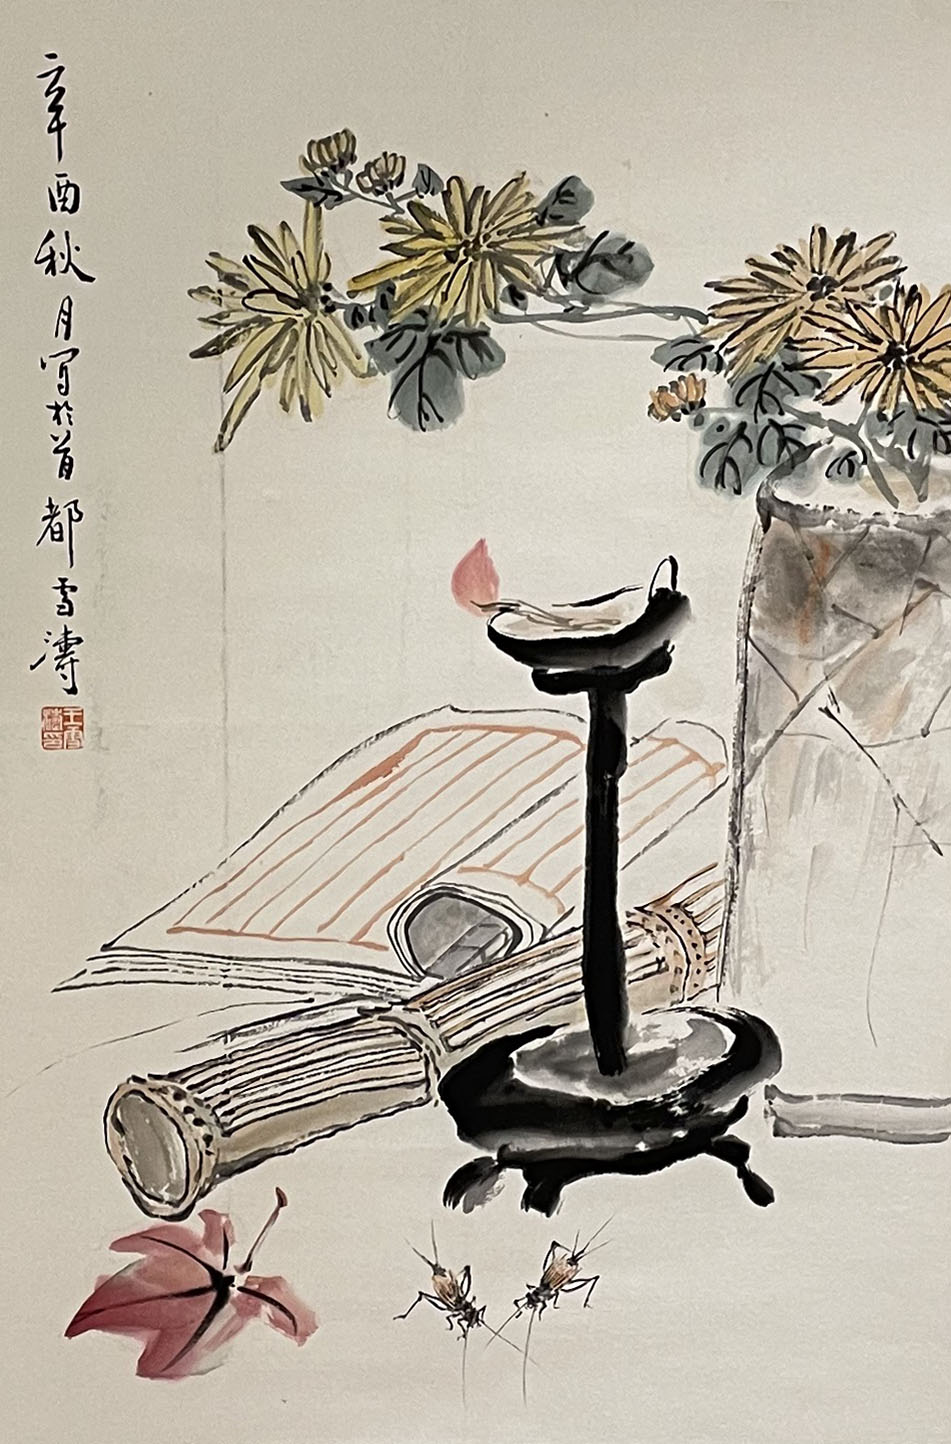 辛酉秋月写於首都雪濤
王雪濤印